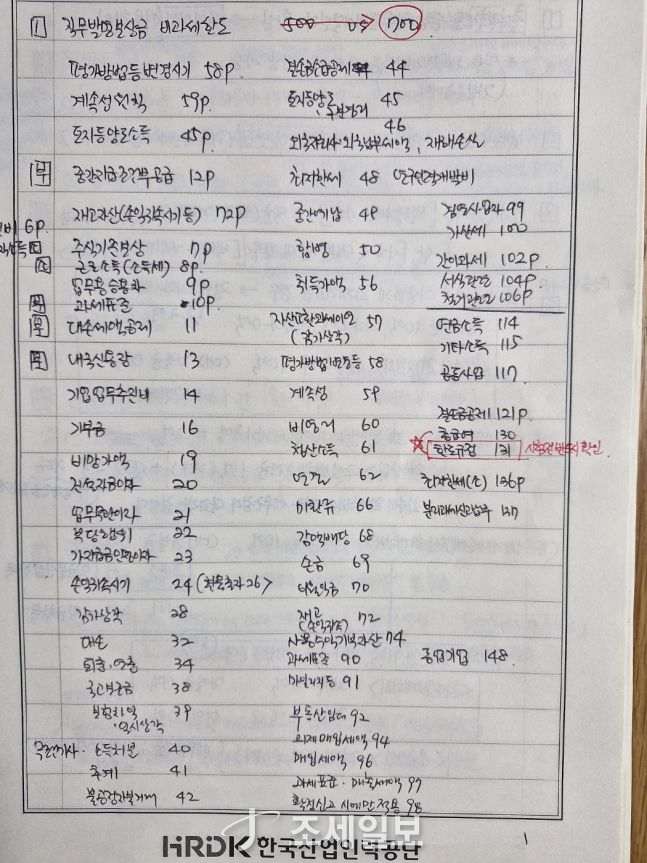 1 직무발명보상금 비과세한도 500 → 700
평가방법등변경시기 58p
계속성원칙 59p
토지등양도소득 45p
중간지급조건부공급 12p
재고자산(손익귀속시기등) 72p
6p
주식기준보상 7p
근로소득(소득세) 8p
업무용승용차 9p
과세표준 10p
대손세액공제 11
내국신용장 13
기업업무추진비 14
기부금 16
비망가액 19
지급이자 20
업무무관이자 21
22
가지급금인정이자 23
손익귀속시기 24 (26)
감가상각 28
대손 32
퇴충·연충 34
국고보조금 38
보험차익 39
·일시상각
소득처분 40
추계 41
불공정자본거래 42
결손금소급공제 44
토지등양도 45
46
외국납부세액, 재해손실
최저한세 48 연구인력개발비
중간예납 49
합병 50
취득가액 56
자산교환 57
(감가상각)
평가방법변경등 58
계속성 59
비영리 60
청산소득 61
연결 62
미환류 66
감면배당 68
송금 69
70
재고 72
(손익귀속)
사용수익기부자산 74
과세표준 90
마일리지등 91
부동산임대 92
의제매입세액 94
매입세액 96
과세표준·매출세액 97
확정신고시에만적용 98
겸영사업자 99
가산세 100
간이과세 102p
서식관련 104p
106p
연금소득 114
기타소득 115
공동사업 117
결손금공제 121p
총급여 130
한도규정 131 시험전반드시확인
최저한세(소) 136p
137
중소기업 148
조세일보
HRDK 한국산업인력공단
1